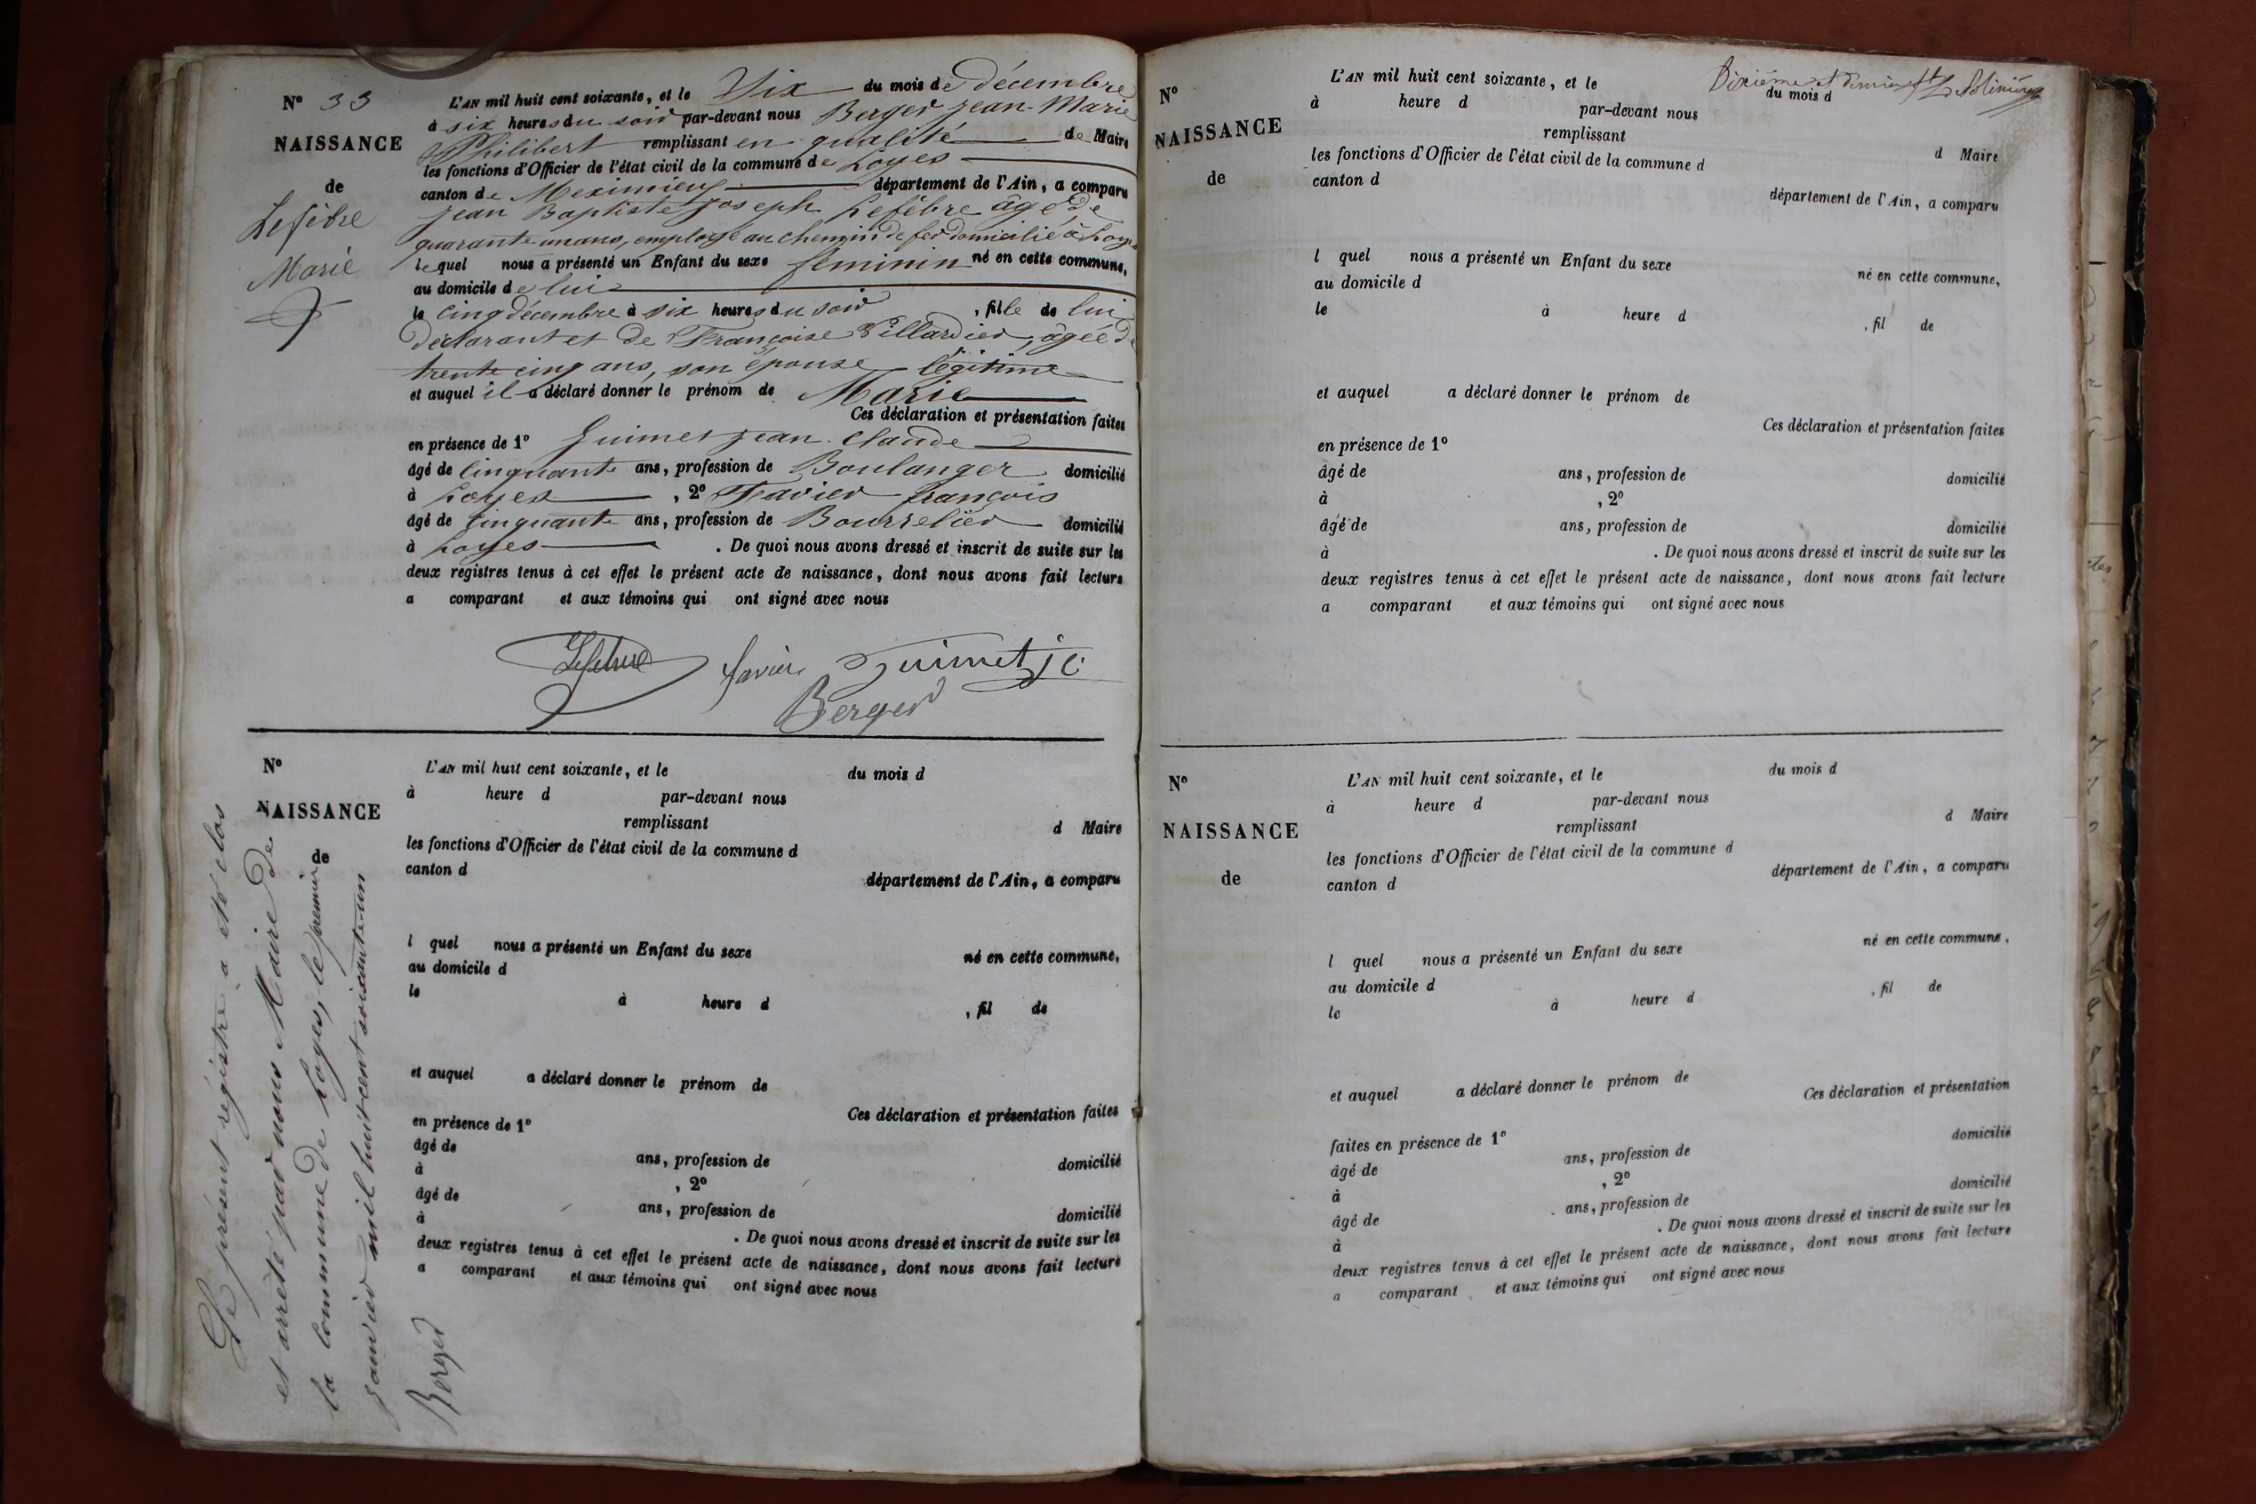 N° 33
NAISSANCE
de
Lefèbre
Marie
L'AN mil huit cent soixante, et le Six du mois de décembre
à six heures du soir par-devant nous Berger Jean-Marie
Philibert remplissant en qualité de Maire
les fonctions d'Officier de l'état civil de la commune de Loyes
canton de Meximieux département de l'Ain, a comparu
Jean Baptiste Joseph Lefèbre âgé de
quarante un ans, employé au chemin de fer domicilié à Loyes
lequel nous a présenté un Enfant du sexe féminin né en cette commune,
au domicile de lui
le cinq décembre à six heures du soir, fille de lui
déclarant et de Françoise Villardier, âgée de
trente cinq ans, son épouse légitime
et auquel il a déclaré donner le prénom de Marie
Ces déclaration et présentation faites
en présence de 1° Guimet Jean Claude
âgé de cinquante ans, profession de Boulanger domicilié
à Loyes, 2° Favier françois
âgé de cinquante ans, profession de Bourrelier domicilié
à Loyes. De quoi nous avons dressé et inscrit de suite sur les
deux registres tenus à cet effet le présent acte de naissance, dont nous avons fait lecture
a comparant et aux témoins qui ont signé avec nous
Lefebre favier Guimet j C
Berger
N°
NAISSANCE
de
L'AN mil huit cent soixante, et le du mois d
à heure d par-devant nous
remplissant d Maire
les fonctions d'Officier de l'état civil de la commune d
canton d département de l'Ain, a comparu
l quel nous a présenté un Enfant du sexe né en cette commune,
au domicile d
le à heure d , fil de
et auquel a déclaré donner le prénom de
Ces déclaration et présentation faites
en présence de 1°
âgé de ans, profession de domicilié
à , 2°
âgé de ans, profession de domicilié
à . De quoi nous avons dressé et inscrit de suite sur les
deux registres tenus à cet effet le présent acte de naissance, dont nous avons fait lecture
a comparant et aux témoins qui ont signé avec nous
Le présent régistre a été clos
et arrêté par nous Maire de
la commune de Loyes, le premier
janvier mil huit cent soixante-un
Berger
N°
NAISSANCE
de
Dixième et dernier
L'AN mil huit cent soixante, et le du mois d
à heure d par-devant nous
remplissant d Maire
les fonctions d'Officier de l'état civil de la commune d
canton d département de l'Ain, a comparu
l quel nous a présenté un Enfant du sexe né en cette commune,
au domicile d
le à heure d , fil de
et auquel a déclaré donner le prénom de
Ces déclaration et présentation faites
en présence de 1°
âgé de ans, profession de domicilié
à , 2°
âgé de ans, profession de domicilié
à . De quoi nous avons dressé et inscrit de suite sur les
deux registres tenus à cet effet le présent acte de naissance, dont nous avons fait lecture
a comparant et aux témoins qui ont signé avec nous
N°
NAISSANCE
de
L'AN mil huit cent soixante, et le du mois d
à heure d par-devant nous
remplissant d Maire
les fonctions d'Officier de l'état civil de la commune d
canton d département de l'Ain, a comparu
l quel nous a présenté un Enfant du sexe né en cette commune,
au domicile d
le à heure d , fil de
et auquel a déclaré donner le prénom de
Ces déclaration et présentation
faites en présence de 1°
âgé de ans, profession de domicilié
à , 2°
âgé de ans, profession de domicilié
à . De quoi nous avons dressé et inscrit de suite sur les
deux registres tenus à cet effet le présent acte de naissance, dont nous avons fait lecture
a comparant et aux témoins qui ont signé avec nous